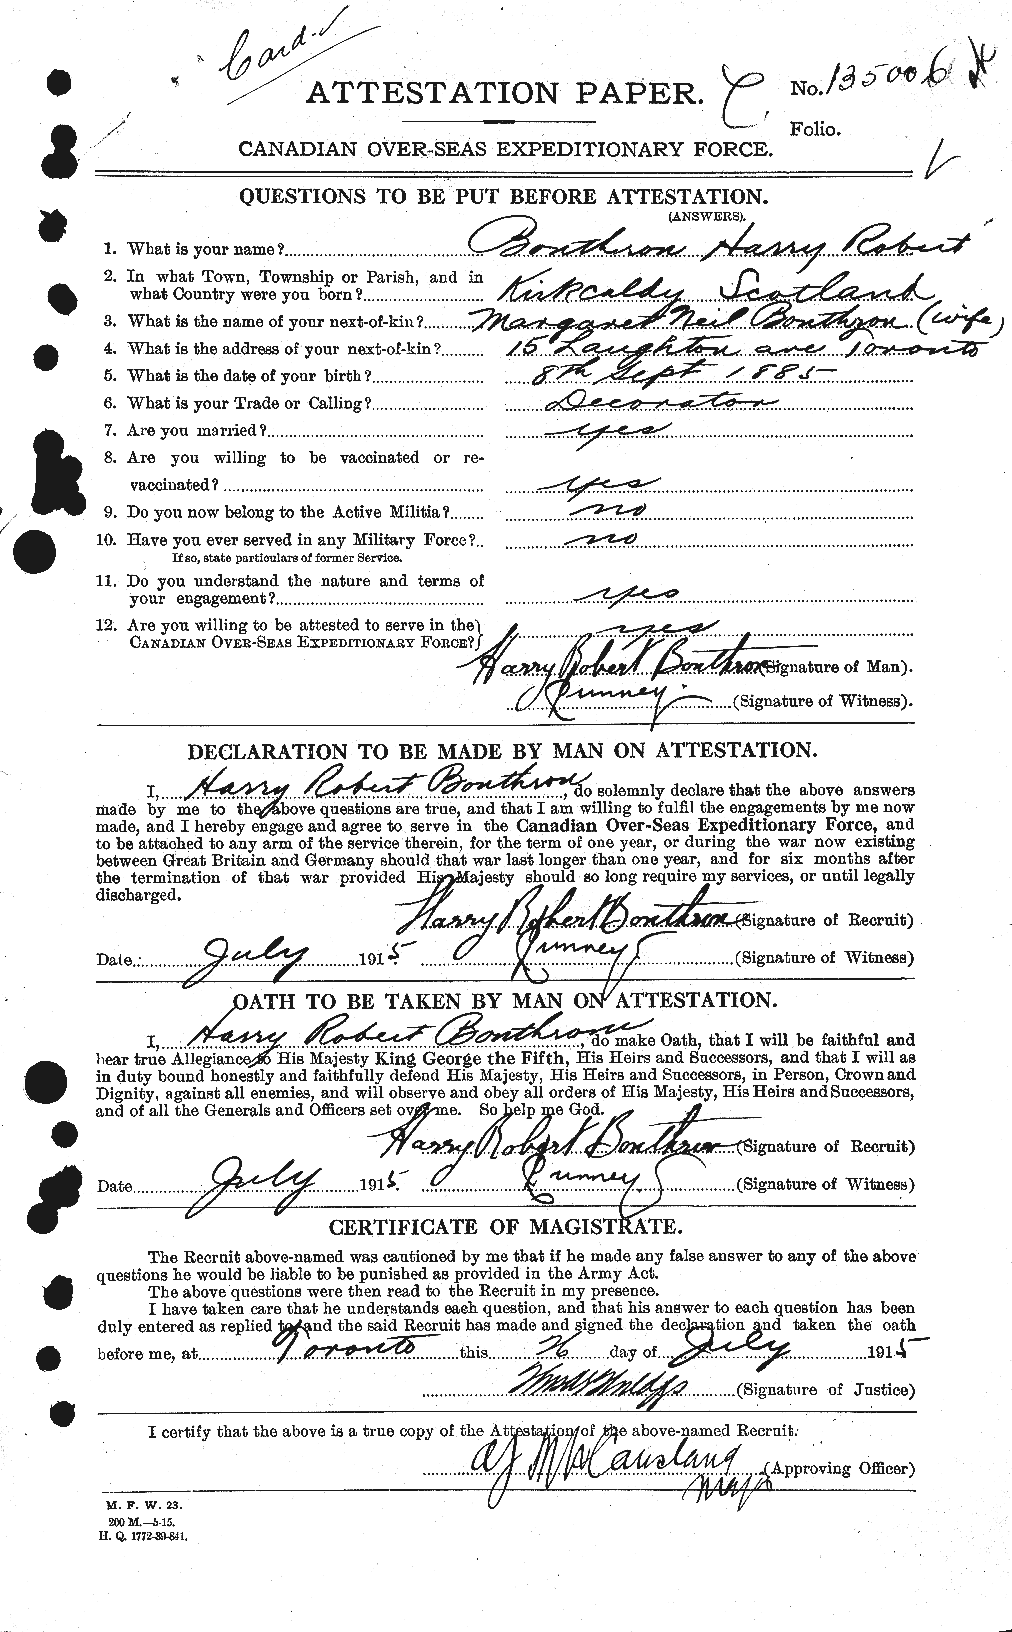 Card
ATTESTATION PAPER.
No. 135006
Folio.
CANADIAN OVER-SEAS EXPEDITIONARY FORCE.
QUESTIONS TO BE PUT BEFORE ATTESTATION.
(ANSWERS).
1. What is your name? Bonthron Harry Robert
2. In what Town, Township or Parish, and in
what Country were you born? Kirkcaldy Scotland
3. What is the name of your next-of-kin? Margaret Neil Bonthron (wife)
4. What is the address of your next-of-kin? 15 Laughton ave Toronto
5. What is the date of your birth? 8th Sept 1885
6. What is your Trade or Calling? Decorator
7. Are you married? yes
8. Are you willing to be vaccinated or re-
vaccinated? yes
9. Do you now belong to the Active Militia? no
10. Have you ever served in any Military Force? no
If so, state particulars of former Service.
11. Do you understand the nature and terms of
your engagement? yes
12. Are you willing to be attested to serve in the
CANADIAN OVER-SEAS EXPEDITIONARY FORCE? yes
Harry Robert Bonthron (Signature of Man).
(Signature of Witness).
DECLARATION TO BE MADE BY MAN ON ATTESTATION.
I, Harry Robert Bonthron, do solemnly declare that the above answers
made by me to the above questions are true, and that I am willing to fulfil the engagements by me now
made, and I hereby engage and agree to serve in the Canadian Over-Seas Expeditionary Force, and
to be attached to any arm of the service therein, for the term of one year, or during the war now existing
between Great Britain and Germany should that war last longer than one year, and for six months after
the termination of that war provided His Majesty should so long require my services, or until legally
discharged.
Harry Robert Bonthron (Signature of Recruit)
Date July 1915. (Signature of Witness)
OATH TO BE TAKEN BY MAN ON ATTESTATION.
I, Harry Robert Bonthron, do make Oath, that I will be faithful and
bear true Allegiance to His Majesty King George the Fifth, His Heirs and Successors, and that I will as
in duty bound honestly and faithfully defend His Majesty, His Heirs and Successors, in Person, Crown and
Dignity, against all enemies, and will observe and obey all orders of His Majesty, His Heirs and Successors,
and of all the Generals and Officers set over me. So help me God.
Harry Robert Bonthron (Signature of Recruit)
Date July 1915. (Signature of Witness)
CERTIFICATE OF MAGISTRATE.
The Recruit above-named was cautioned by me that if he made any false answer to any of the above
questions he would be liable to be punished as provided in the Army Act.
The above questions were then read to the Recruit in my presence.
I have taken care that he understands each question, and that his answer to each question has been
duly entered as replied to, and the said Recruit has made and signed the declaration and taken the oath
before me, at Toronto this 26 day of July 1915
(Signature of Justice)
I certify that the above is a true copy of the Attestation of the above-named Recruit.
(Approving Officer)
M. F. W. 23.
200 M.—5-15.
H. Q. 1772-39-841.